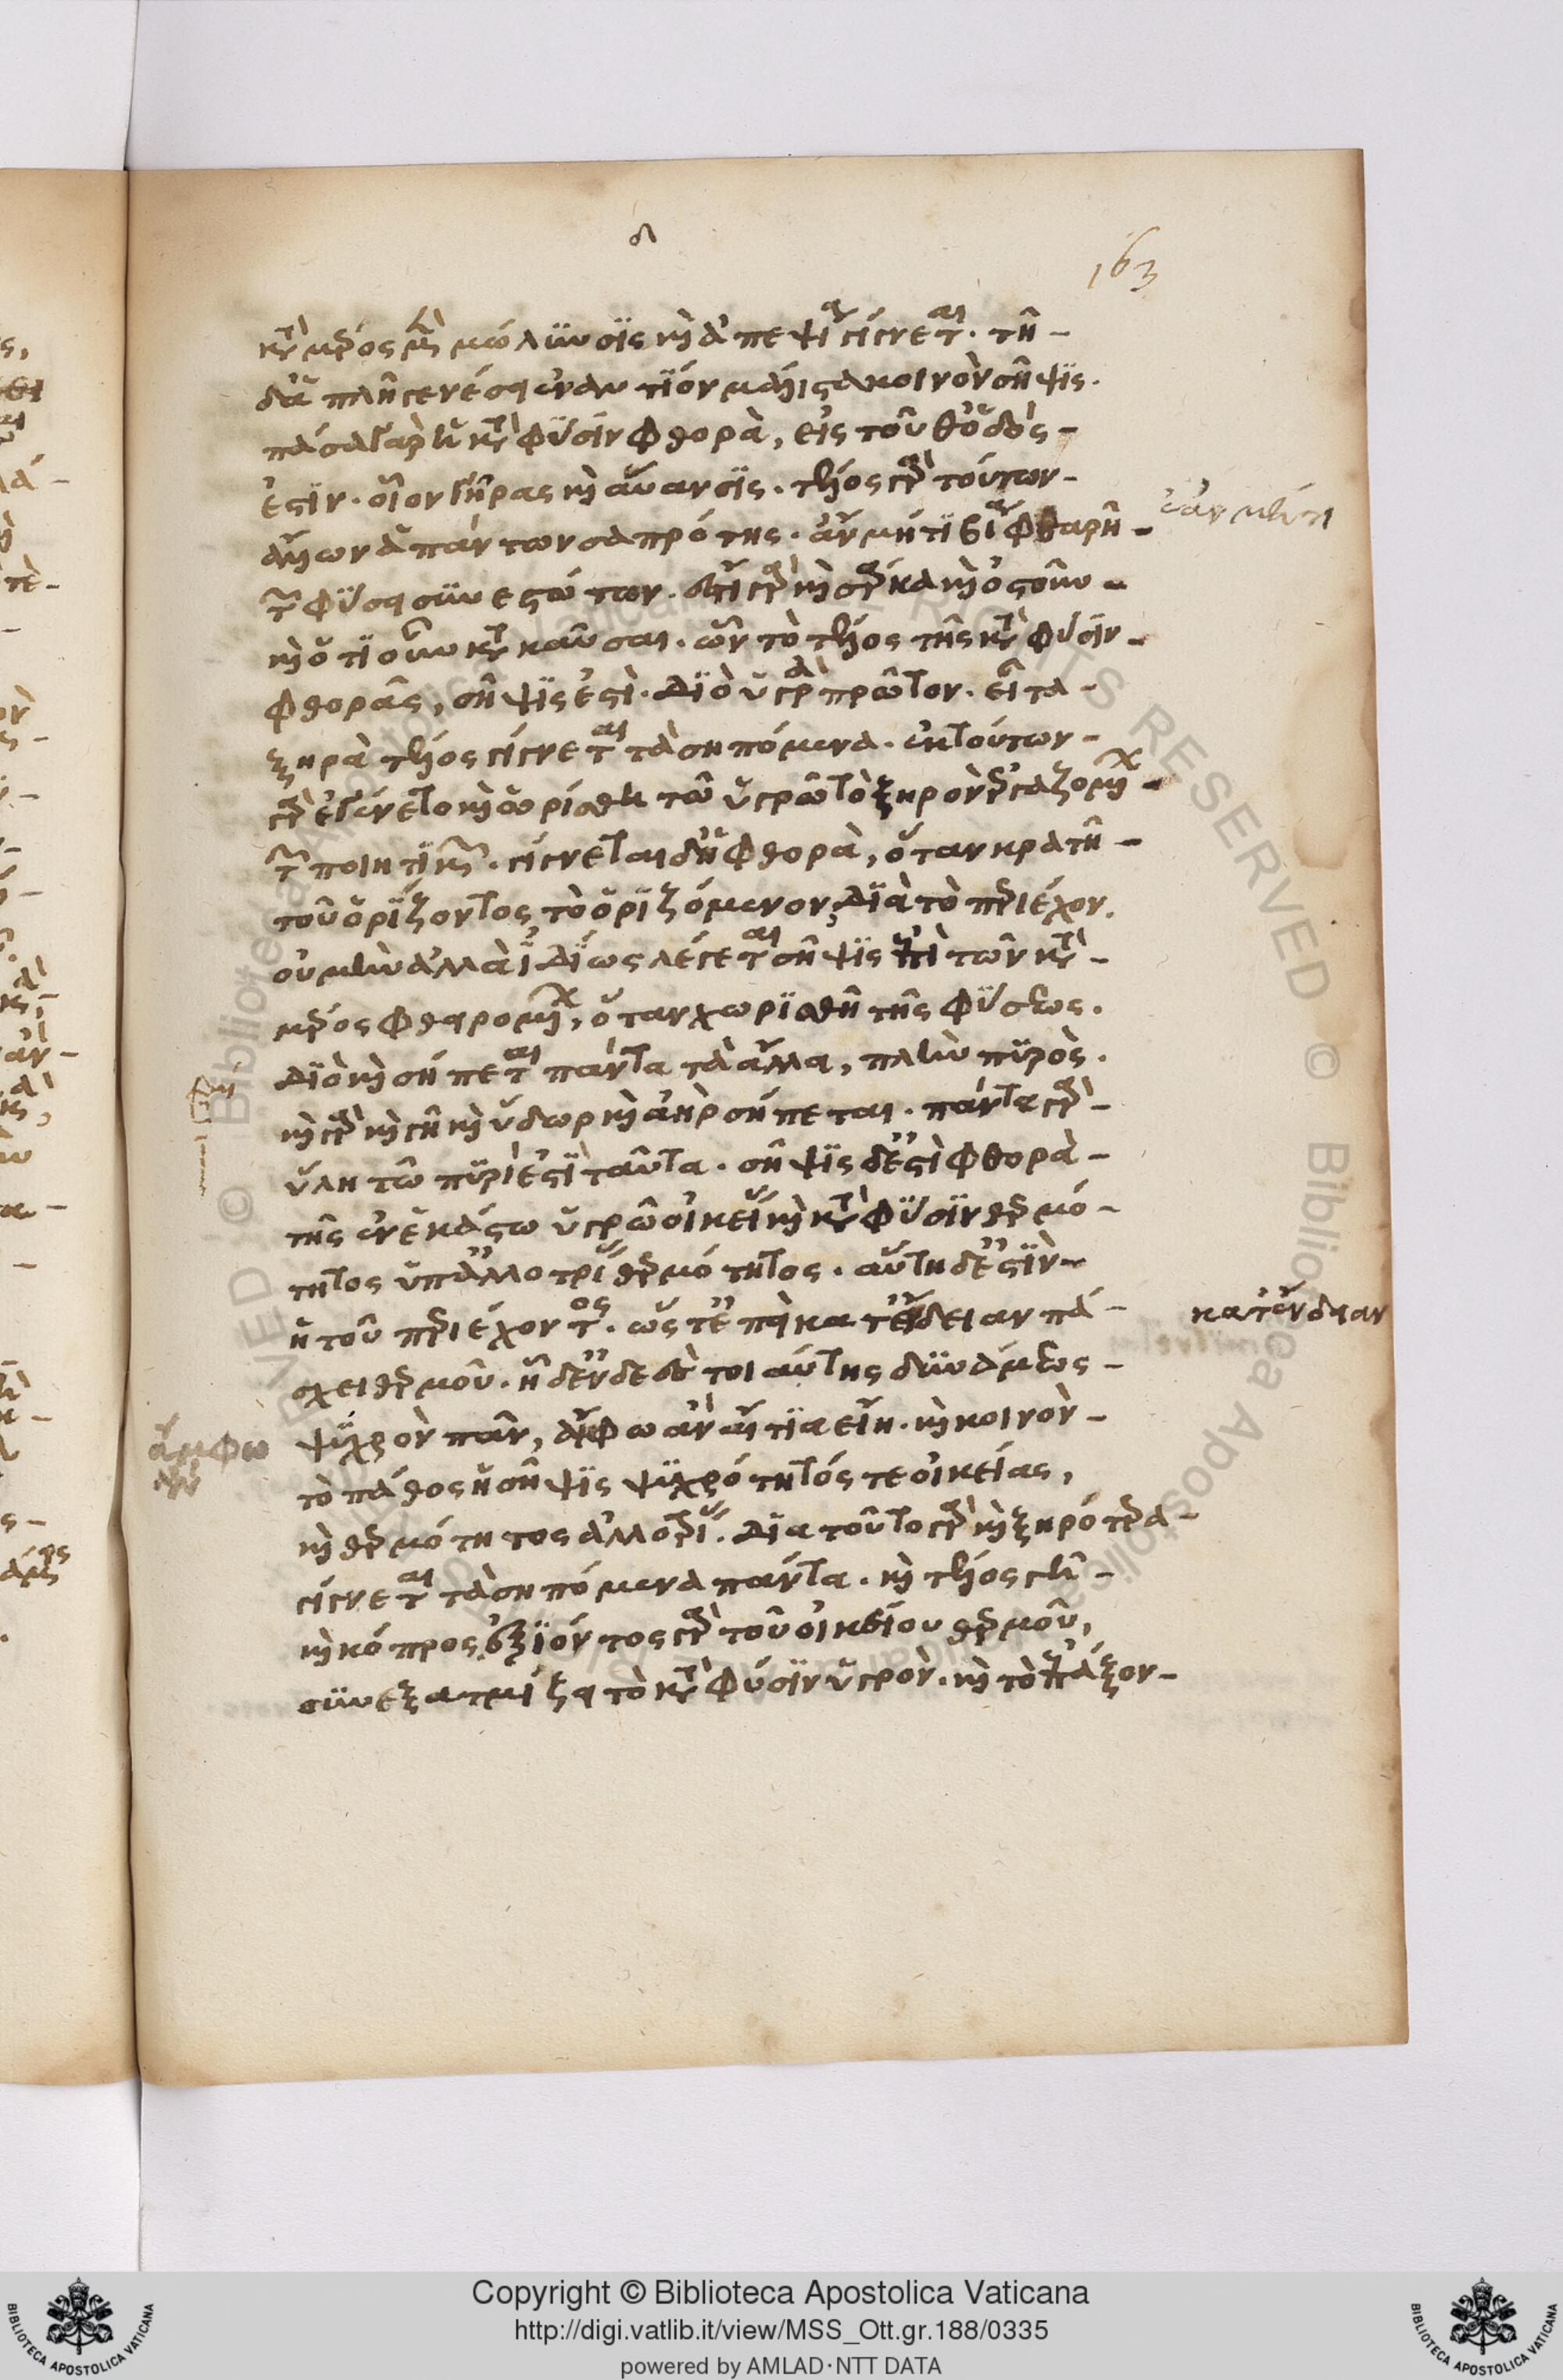 δ
163
κατὰ μέρος μὲν μώλυνσις καὶ ἀπεψία γίγνεται. τῆ
δὲ ἁπλῆ γενέσει ἐναντίον μάλιστα κοινὸν σῆψις.
πᾶσα γὰρ ἡ κατὰ φύσιν φθορὰ, εἰς τοῦθ' ὁδὸς
ἐστίν. οἷον γῆρας καὶ αὔανσις. τέλος γὰρ τούτων
ἄλλων ἁπάντων σαπρότης. ἂν μήτι βίᾳ φθαρῆ
τῶν φύσει συνεστώτων. ἔστι γὰρ καὶ σάρκα καὶ ὀστοῦν
καὶ ὁτιοῦν κατακαῦσαι. ὧν τὸ τέλος τῆς κατὰ φύσιν
φθορᾶς, σῆψις ἐστὶ. διὸ ὑγρὰ πρῶτον. εἶτα
ξηρὰ τέλος γίγνεται τὰ σηπόμενα. ἐκ τούτων
γὰρ ἐγένετο καὶ ὡρίσθη τῶ ὑγρῶ τὸ ξηρὸν ἐργαζομένων
τῶν ποιητικῶν. γίγνεται δ' ἡ φθορὰ, ὅταν κρατῆ
τοῦ ὁρίζοντος τὸ ὁριζόμενον, διὰ τὸ περιέχον.
οὐ μὴν ἀλλὰ ἰδίως λέγεται σῆψις ἐπὶ τῶν κατὰ
μέρος φθειρομένων, ὅταν χωρισθῆ τῆς φύσεως.
διὸ καὶ σήπεται πάντα τὰ ἄλλα, πλὴν πυρὸς.
καὶ γὰρ καὶ γῆ καὶ ὕδωρ καὶ ἀὴρ σήπεται. πάντα γὰρ
ὕλη τῶ πυρί ἐστι ταῦτα. σῆψις δ' ἐστὶ φθορὰ
τῆς ἐν ἑκάστω ὑγρῶ οἰκείου καὶ κατὰ φύσιν θερμό
τητος ὑπ' ἀλλοτρίου θερμότητος. αὕτη δ' ἐστὶν
ἡ τοῦ περιέχοντος. ὥστ' ἐπεὶ κατ' ἔνδειαν πά
σχει θερμοῦ. ἢ δ' ἐνδεὲς τοιαύτης δυνάμεως
ψυχρὸν πᾶν, ἄμφω ἂν αἴτια εἴη. καὶ κοινὸν
τὸ πάθος ἡ σῆψις ψυχρότητός τε οἰκείας,
καὶ θερμότητος ἀλλοτρίου. διὰ τοῦτο γὰρ καὶ ξηρότερα
γίγνεται τὰ σηπόμενα πάντα. καὶ τέλος γῆ
καὶ κόπρος. ἐξιόντος γὰρ τοῦ οἰκείου θερμοῦ,
συνεξατμίζει τὸ κατὰ φύσιν ὑγρὸν. καὶ τὸ σπάξον
ἐὰν μήτι
κατ' ἔνδειαν
ἄμφω
ἂν
Copyright © Biblioteca Apostolica Vaticana
http://digi.vatlib.it/view/MSS_Ott.gr.188/0335
powered by AMLAD·NTT DATA
BIBLIOTECA APOSTOLICA VATICANA
BIBLIOTECA APOSTOLICA VATICANA